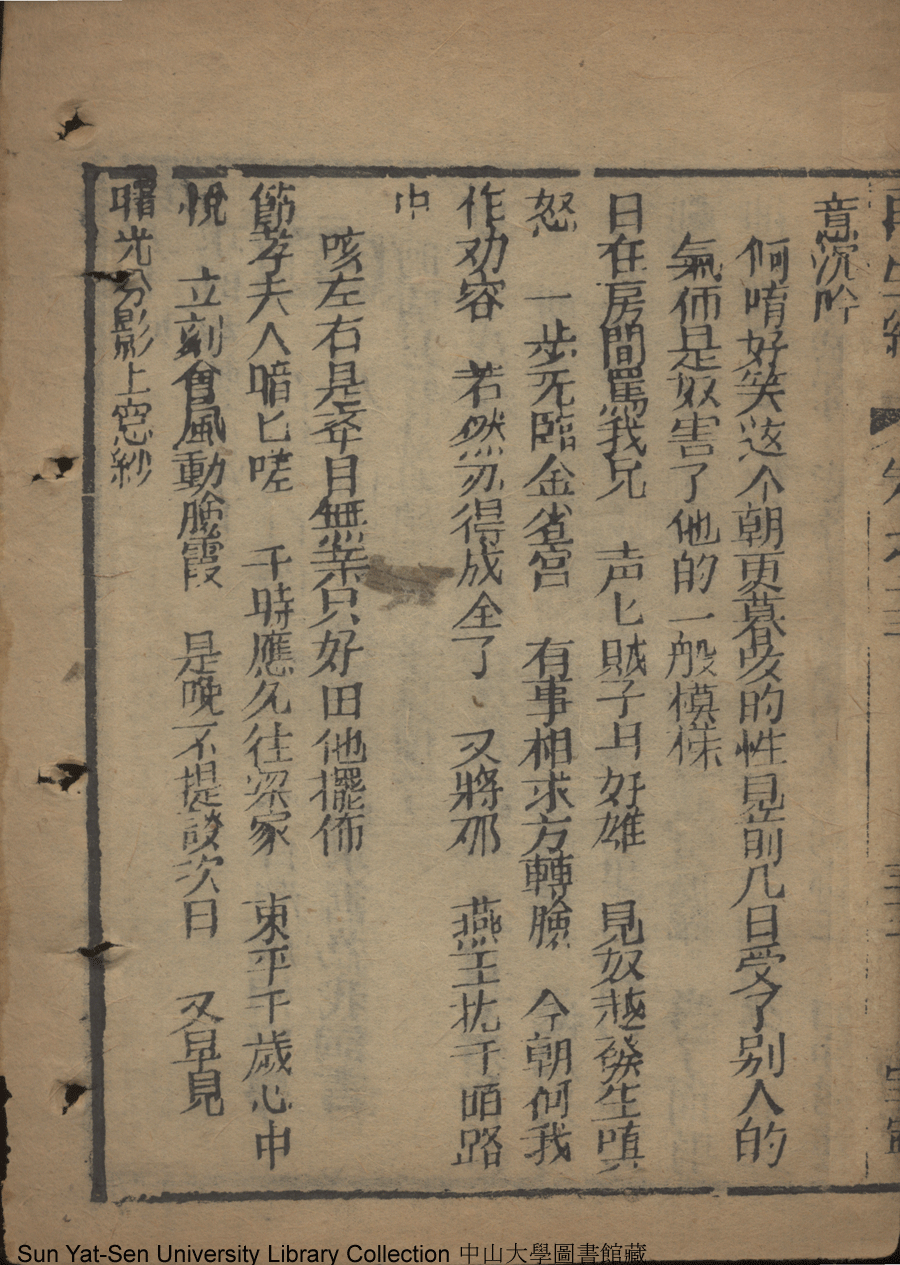 意沉吟
何唷好笑这个朝更暮改的性見前几日受了别人的
氣俩是奴害了他的一般模様
日在房間罵我兄 声匕賊子丹奸雄 見奴越發生嗔
怒 一步无臨金雀宫 有事相求方轉臉 今朝何我
作劝容 若然不得成全了 又將邪 燕王抗千陌路
中
咳左右是奉旦無業只好田他擺佈
節孝夫人暗匕嗟 千時應允往梁家 東平千歲心中
悅 立刻會風動臉霞 是晚不提談次日 又早見
曙光分影上窓紗
Sun Yat-Sen University Library Collection 中山大學圖書館藏